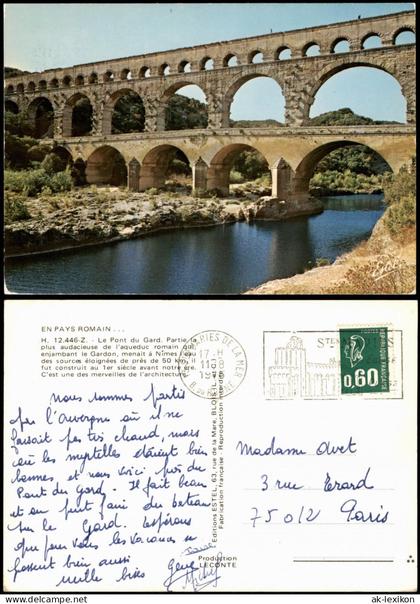 EN PAYS ROMAIN...
H. 12.446-Z. - Le Pont du Gard. Partie la
plus audacieuse de l'aqueduc romain qui
enjambant le Gardon, menait à Nîmes l'eau
des sources éloignées de près de 50 km, il
fut construit au 1er siècle avant notre ère.
C'est une des merveilles de l'architecture.
nous sommes partis
par l'Auvergne où il ne
faisait pas très chaud, mais
où les myrtelles étaient bien
bonnes, et nous voici près du
Pont du Gard. Il fait beau
et on peut faire du bateau
sur le Gard. Espérons
que pour vous les vacances se
passent bien aussi
mille bises
Editions ESTEL, 63, rue de la Mare, BLOIS
Fabrication française - Reproduction interdite
Production
LECONTE
MARIES DE LA MER
17-H
STES
REPUBLIQUE FRANÇAISE
POSTES
0,60
Madame Avet
3 rue Erard
75012 Paris
© ak-ansichtskarten.de
ak-lexikon.com